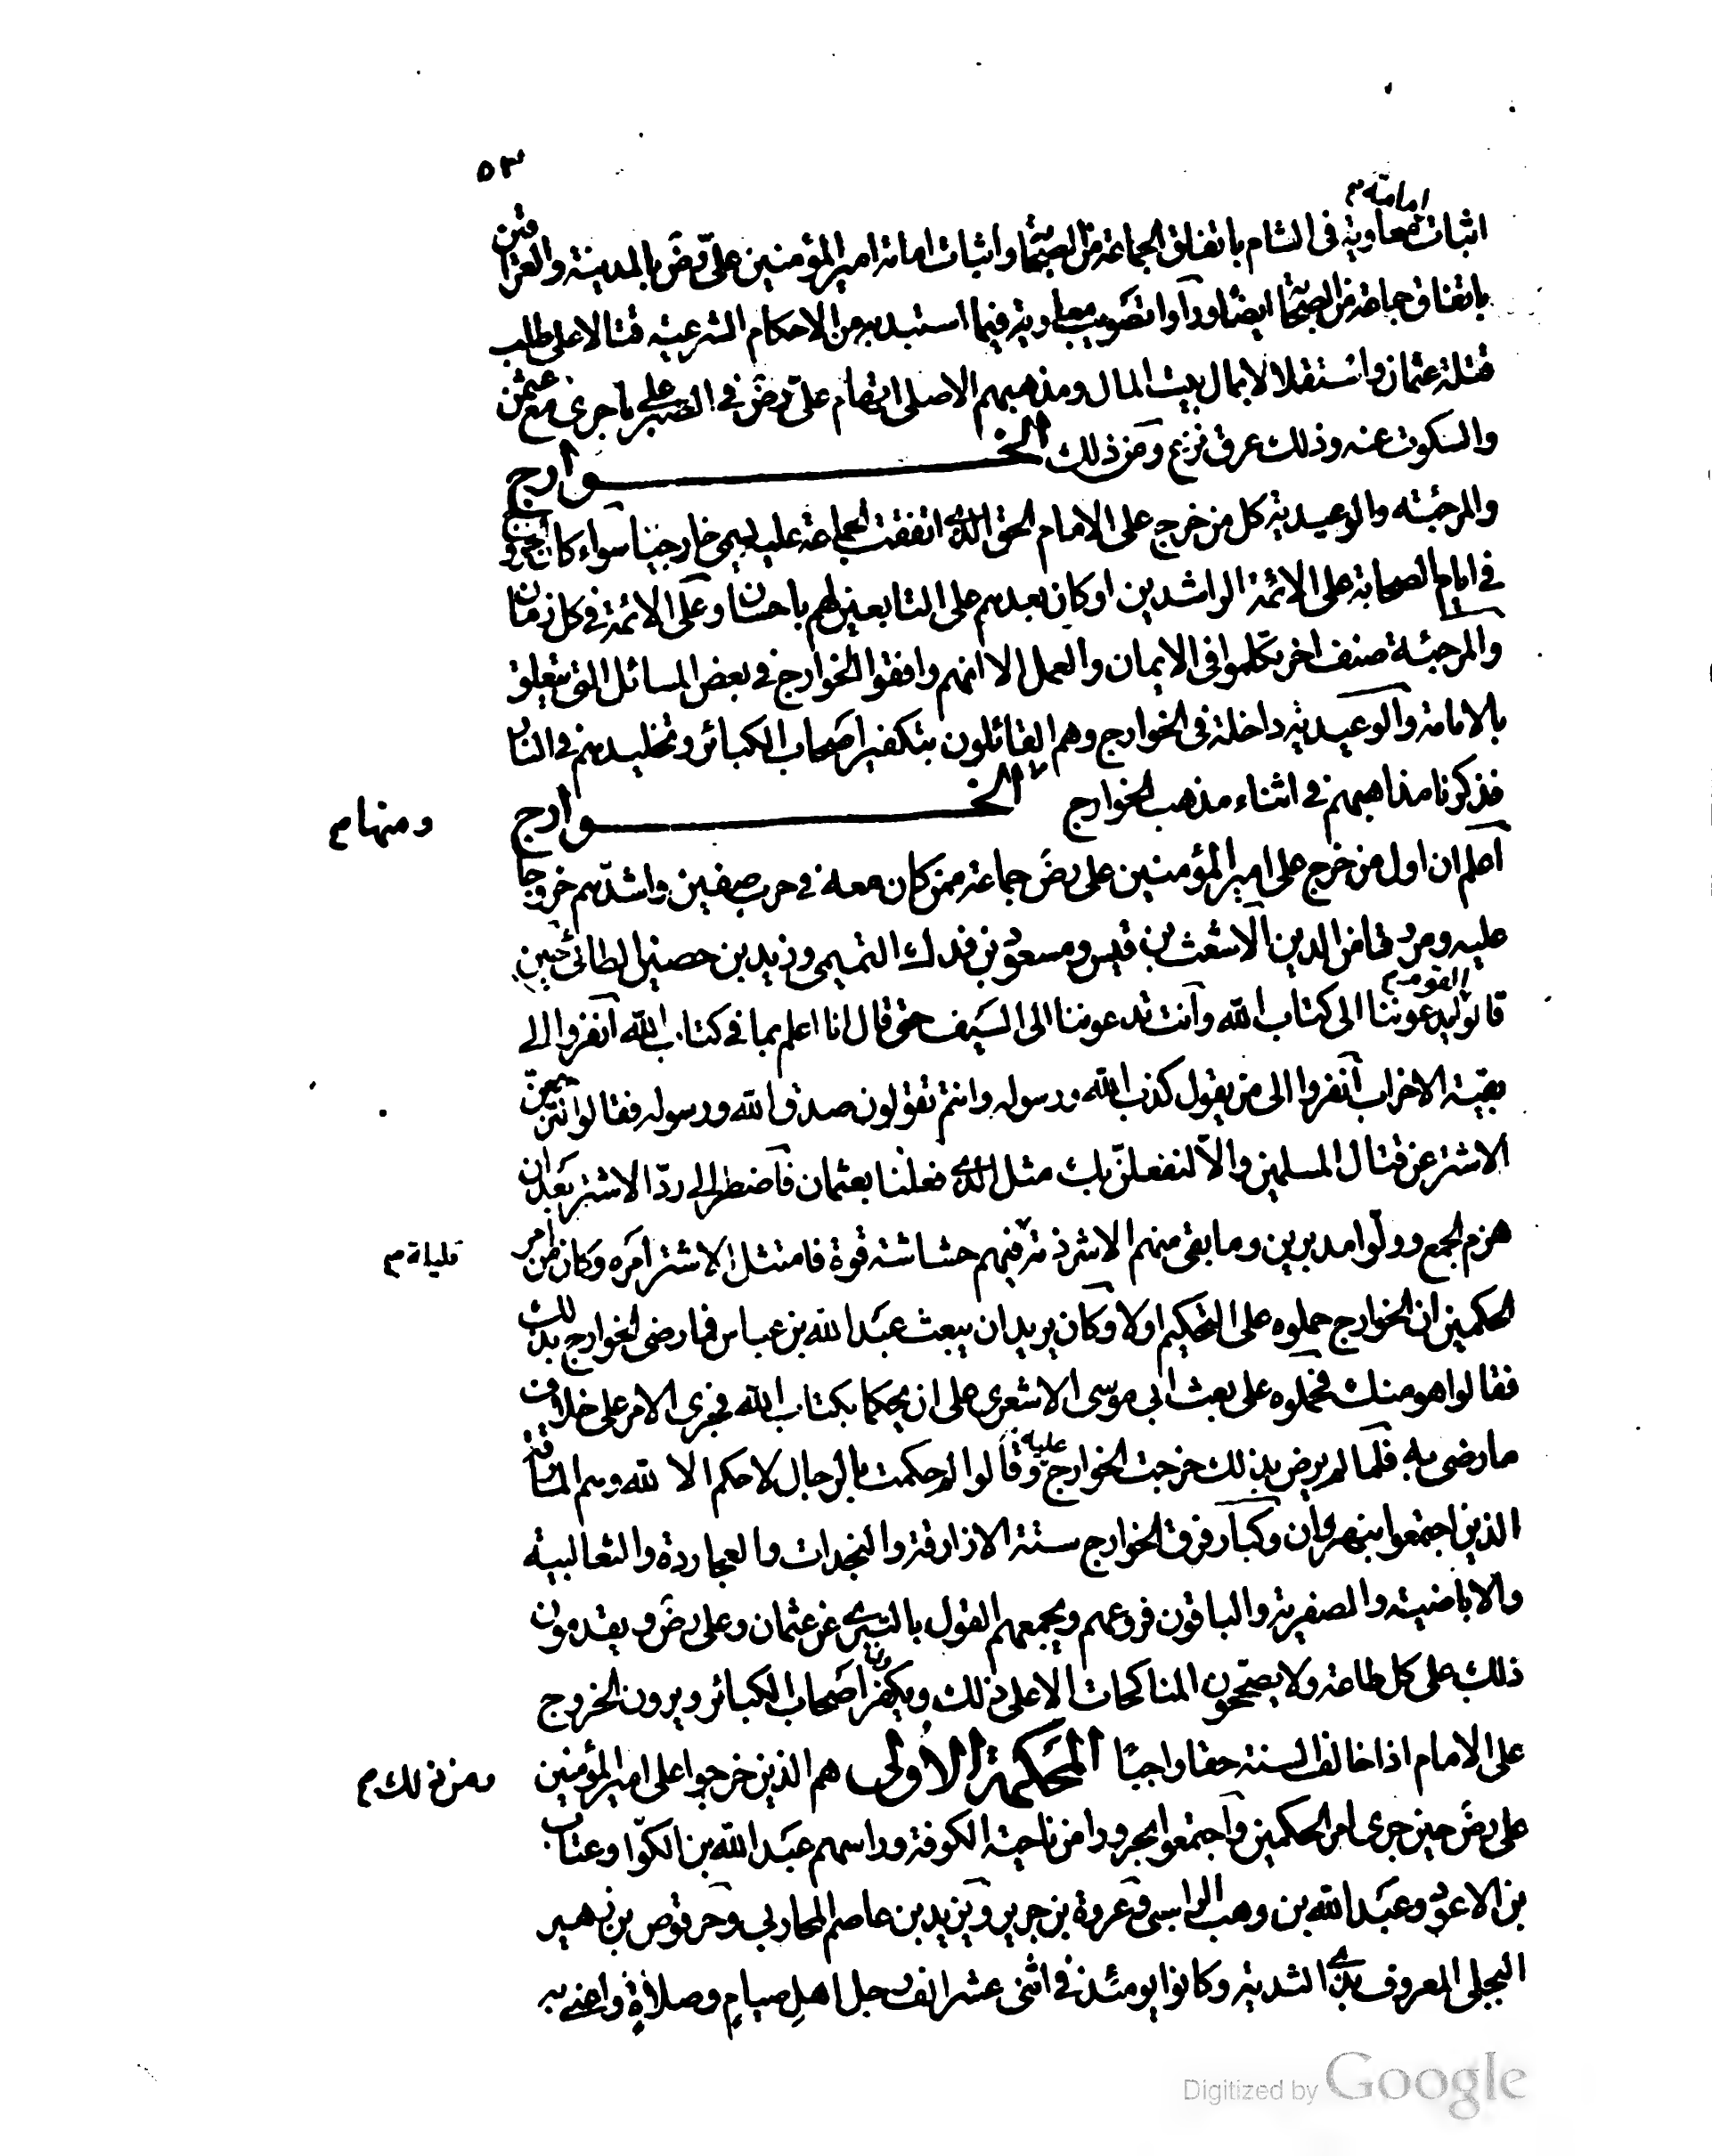 ٥٣
امامة م
اثبات معاوية في الشام باتفاق الجماعة من الصحابة واثبات امامة امير المؤمنين علي رض بالمدينة والعراقين
باتفاق جماعة من الصحابة ايضا ورأوا تصويب معاوية فيما استبد به من الاحكام الشرعية قتالا على طلب
قتلة عثمان واستقلالا بمال بيت المال ومذهبهم الاصلي اتهام علي رض في الصبر على ما جرى مع عثمن
والسكوت عنه وذلك عرق نزع ومن ذلك الخوارج
والمرجئة والوعيدية كل من خرج على الامام الحق الذي اتفقت الجماعة عليه يسمى خارجيا سواء كان الخروج
في ايام الصحابة على الائمة الراشدين او كان بعدهم على التابعين لهم باحسان وعلى الائمة في كل زمان
والمرجئة صنف اخر تكلموا في الايمان والعمل الا انهم وافقوا الخوارج في بعض المسائل التي تتعلق
بالامامة والوعيدية داخلة في الخوارج وهم القائلون بتكفير اصحاب الكبائر وتخليدهم في النار
فذكرنا مذاهبهم في اثناء مذهب الخوارج الخوارج
ومنها م
اعلم ان اول من خرج على امير المؤمنين علي رض جماعة ممن كان معه في حرب صفين واشدهم خروجا
عليه ومروقا من الدين الاشعث بن قيس ومسعود بن فدك التميمي وزيد بن حصين الطائي حين
القوم م
قالوا يدعوننا الى كتاب الله وانت تدعوننا الى السيف حتى قال انا اعلم بما في كتاب الله انفروا الى
بقية الاحزاب انفروا الى من يقول كذب الله ورسوله وانتم تقولون صدق الله ورسوله فقالوا لترجعن
الاشتر عن قتال المسلمين والا لنفعلن بك مثل الذي فعلنا بعثمان فاضطر الى رد الاشتر بعد ان
هزم الجمع وولوا مدبرين وما بقي منهم الا شرذمة فيهم حشاشة قوة فامتثل الاشتر امره وكان من امر
قليلة م
الحكمين ان الخوارج حملوه على التحكيم اولا وكان يريد ان يبعث عبد الله بن عباس فما رضي الخوارج بذلك
فقالوا هو منك فحملوه على بعث ابي موسى الاشعري على ان يحكما بكتاب الله فجرى الامر على خلاف
ما رضي به فلما لم يرض بذلك خرجت الخوارج عليه وقالوا لم حكمت بالرجال لا حكم الا لله وهم المارقة
الذين اجتمعوا بنهروان وكبار فرق الخوارج ستة الازارقة والنجدات والعجاردة والثعالبية
والاباضية والصفرية والباقون فروعهم ويجمعهم القول بالتبري عن عثمان وعلي رض ويقدمون
ذلك على كل طاعة ولا يصححون المناكحات الا على ذلك ويكفرون اصحاب الكبائر ويرون الخروج
على الامام اذا خالف السنة حقا واجبا المحكمة الاولى هم الذين خرجوا على امير المؤمنين
ومن ذلك م
علي رض حين جرى امر الحكمين واجتمعوا بحرورا من ناحية الكوفة وراسهم عبد الله بن الكوا وعتاب
بن الاعور وعبد الله بن وهب الراسبي وعروة بن جرير ويزيد بن عاصم المحاربي وحرقوص بن زهير
البجلي المعروف بذي الثدية وكانوا يومئذ في اثنى عشر الف رجل اهل صيام وصلاة واعني به
Digitized by Google